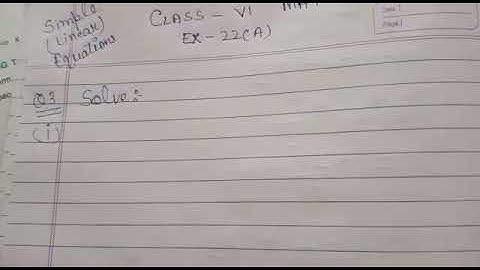 Simple
(Linear)
Equations
CLASS - VI
EX - 22(A)
Q3 Solve :
(i)